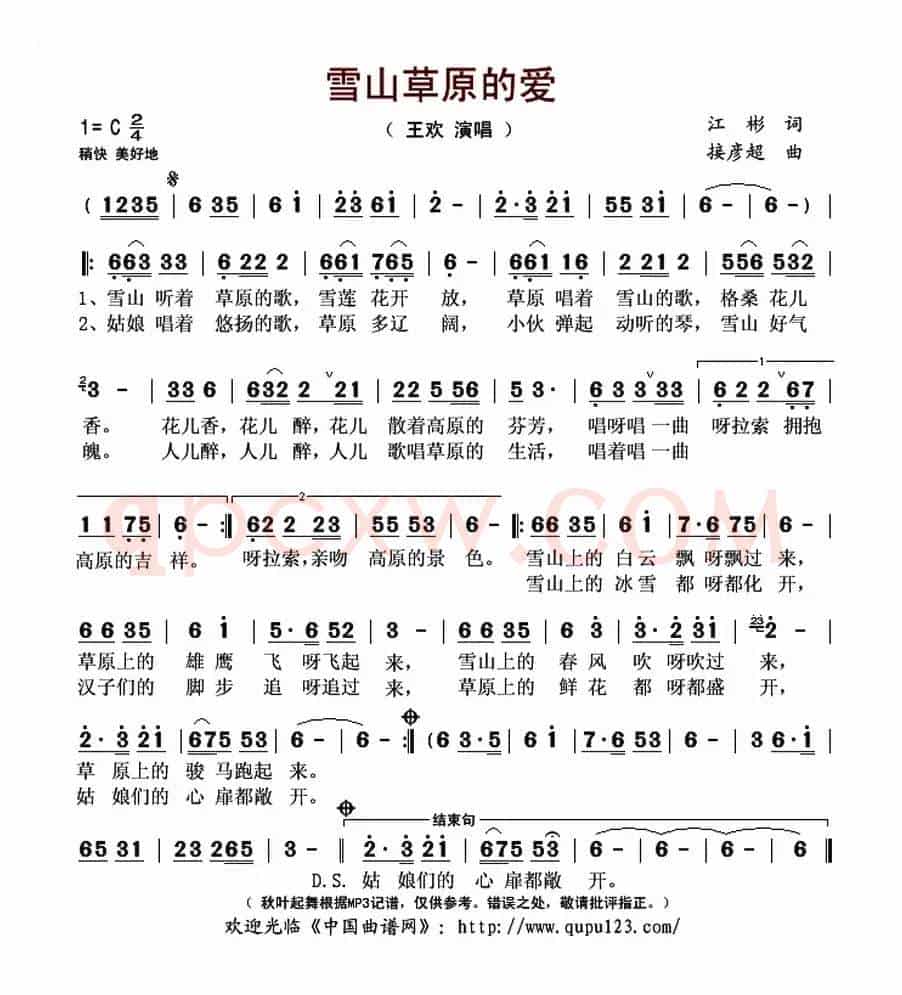 雪山草原的爱
1=C 2/4
（ 王欢 演唱 ）
江 彬 词
稍快 美好地
接彦超 曲
( 1235 | 6 35 | 6 i | 23 6i | 2 - | 2·3 2i | 55 3i | 6 - | 6 - ) |
‖: 663 33 | 6 22 2 | 661 765 | 6 - | 661 16 | 2 21 2 | 556 532 |
1、雪山 听着 草原的歌，雪莲 花开 放，草原 唱着 雪山的歌，格桑 花儿
2、姑娘 唱着 悠扬的歌，草原 多辽 阔，小伙 弹起 动听的琴，雪山 好气
1
2 3 - | 33 6 | 632 2 21 | 22 5 56 | 5 3· | 63 3 33 | 62 2 67 |
香。 花儿香，花儿 醉，花儿 散着高原的 芬芳， 唱呀唱 一曲 呀拉索 拥抱
魄。 人儿醉，人儿 醉，人儿 歌唱草原的 生活， 唱着唱 一曲
qpcxw.com
2
1 1 75 | 6 - :‖ 62 2 23 | 55 53 | 6 - ‖: 66 35 | 6 i | 7·6 75 | 6 - |
高原的吉 祥。 呀拉索，亲吻 高原的景 色。 雪山上的 白云 飘 呀飘过 来，
雪山上的 冰雪 都 呀都化 开，
6 6 35 | 6 i | 5·6 52 | 3 - | 6 6 35 | 6 3 | 3·2 3i | 23 2 - |
草原上的 雄鹰 飞 呀飞起 来， 雪山上的 春风 吹 呀吹过 来，
汉子们的 脚步 追 呀追过 来， 草原上的 鲜花 都 呀都盛 开，
2·3 2i | 675 53 | 6 - | 6 - :‖ (6 3·5 | 6 i | 7·6 53 | 6 - | 3 6·i |
草 原上的 骏 马跑起 来。
姑 娘们的 心 扉都敞 开。
结束句
65 31 | 23 265 | 3 - ‖ 2·3 2i | 675 53 | 6 - | 6 - | 6 - | 6 - ‖
D.S. 姑 娘们的 心 扉都敞 开。
（ 秋叶起舞根据MP3记谱，仅供参考。错误之处，敬请批评指正。）
欢迎光临《中国曲谱网》：http://www.qupu123.com/